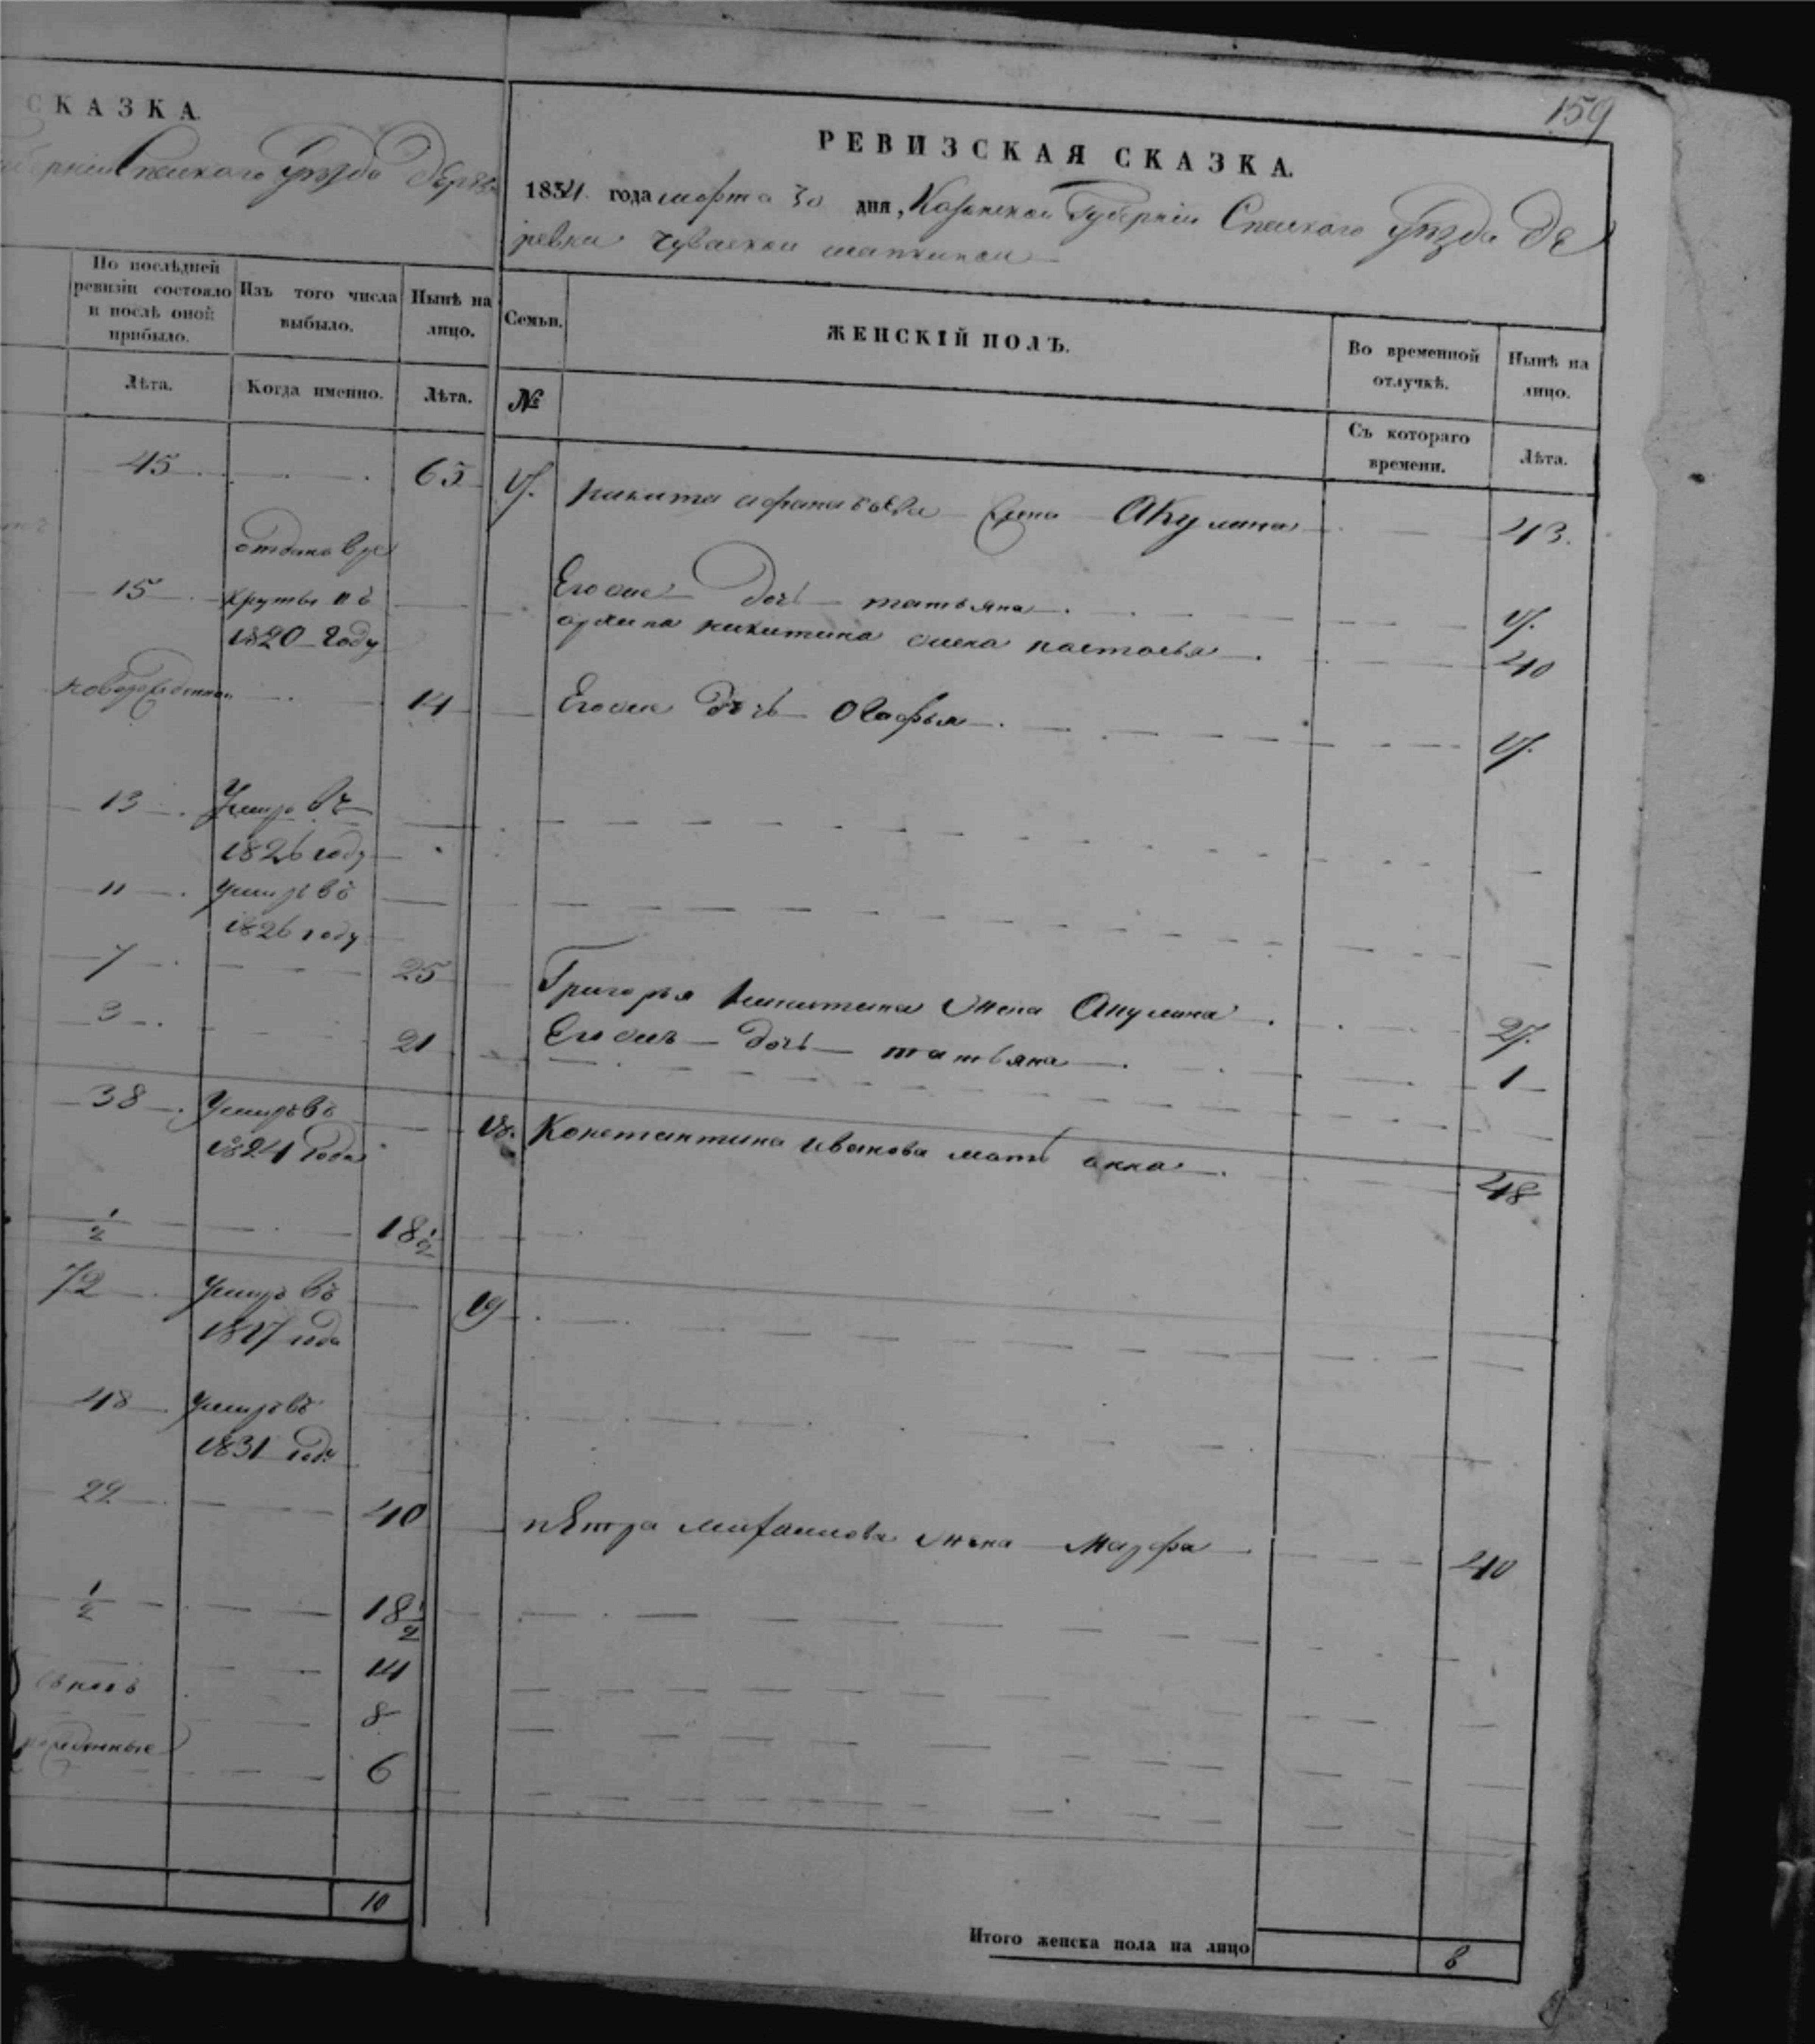 СКАЗКА.
Спаскаго Уѣзда Дерев
По послѣдней ревизіи состояло и послѣ оной прибыло.
Изъ того числа выбыло.
Нынѣ на лицо.
Лѣта.
Когда именно.
Лѣта.
45 65
отданъ в ре
15 круты въ
1820 году
новорожденной 14
13 Умир въ
1826 году
11 умиръ въ
1826 году
7 25
3 21
38 Умиръ въ
1824 года
1/2 18 1/2
72 умиръ въ
1817 года
48 умиръ въ
1831 году
22 40
1/2 18 1/2
14
8
рожденные
6
10
159
РЕВИЗСКАЯ СКАЗКА.
1834 года марта 30 дня, Казанской Губерніи Спаскаго Уѣзда Де
ревни Чуваской
Семьи.
ЖЕНСКІЙ ПОЛЪ.
Во временной отлучкѣ.
Нынѣ на лицо.
№
Съ котораго времени.
Лѣта.
17. Никита афанасьева жена Акулина 43.
Егоже дочь татьяна 17.
архипа никитина жена настасья 40
Егоже дочь 17.
Григорья никитина жена Акулина 27.
Егоже дочь татьяна 1
18. Константина иванова мать анна 48
19
петра михайлова жена марфа 40
Итого женска пола на лицо 8